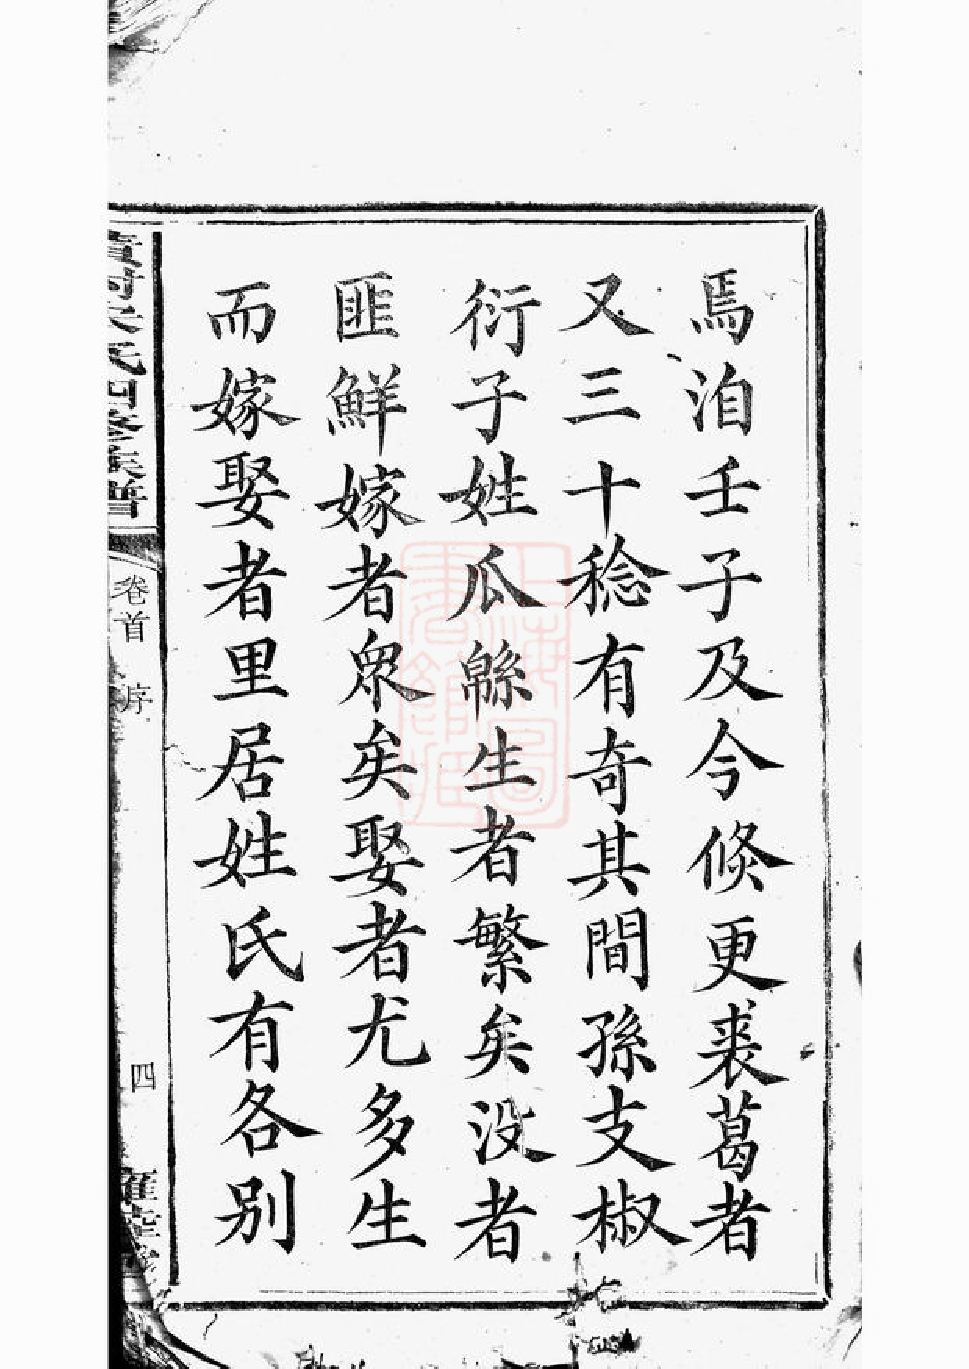 焉洎壬子及今倐更裘葛者
又三十稔有奇其間孫支椒
衍子姓瓜緜生者繁矣没者
匪鮮嫁者衆矣娶者尤多生
而嫁娶者里居姓氏有各別
氏四修族譜
卷首
序
四